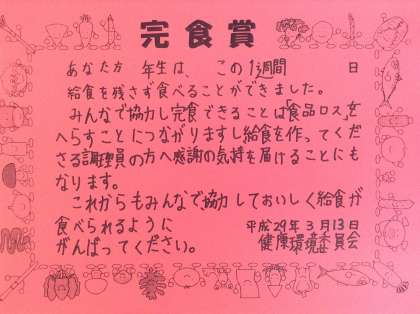 完食賞
あなた方 年生は、この1週間 日
給食を残さず食べることができました。
みんなで協力し完食できることは「食品ロス」を
へらすことにつながりますし給食を作ってくだ
さる調理員の方へ感謝の気持を届けることにも
なります。
これからもみんなで協力しておいしく給食が
食べられるように
がんばってください。
平成29年3月13日
健康環境委員会